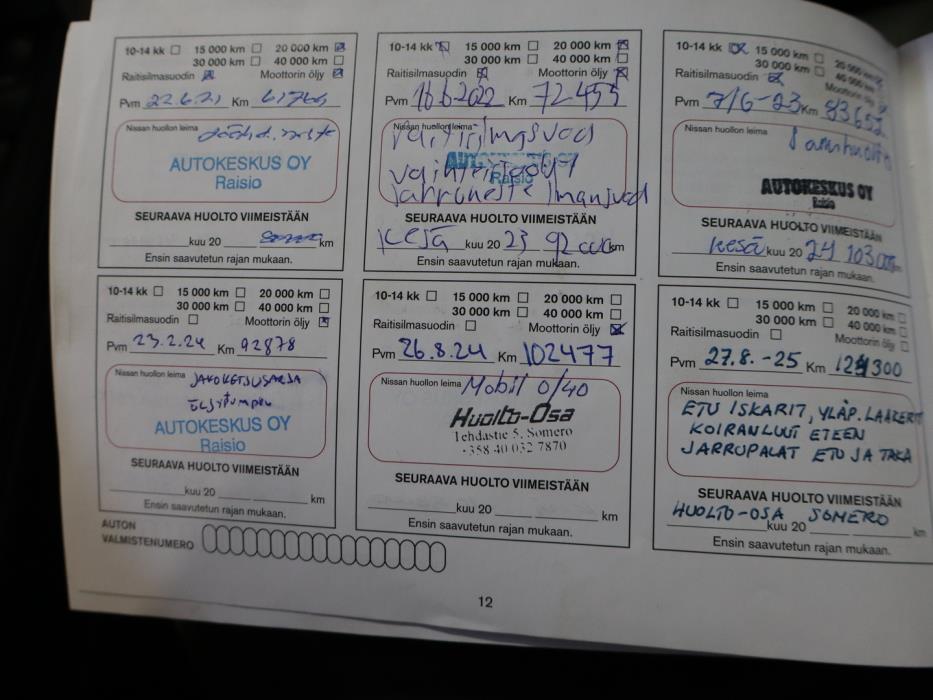 10-14 kk 15 000 km 20 000 km
30 000 km 40 000 km
Raitisilmasuodin Moottorin öljy
Pvm 22.6.21 Km 61764
Nissan huollon leima
AUTOKESKUS OY
Raisio
SEURAAVA HUOLTO VIIMEISTÄÄN
kuu 20 km
Ensin saavutetun rajan mukaan.
10-14 kk 15 000 km 20 000 km
30 000 km 40 000 km
Raitisilmasuodin Moottorin öljy
Pvm 16.6.2022 Km 72455
Nissan huollon leima
Raisio
SEURAAVA HUOLTO VIIMEISTÄÄN
Kesä kuu 20 23 92 000 km
Ensin saavutetun rajan mukaan.
10-14 kk 15 000 km 20 000 km
30 000 km 40 000 km
Raitisilmasuodin Moottorin öljy
Pvm 7/6-23 Km 83652
Nissan huollon leima
AUTOKESKUS OY
Raisio
SEURAAVA HUOLTO VIIMEISTÄÄN
kesä kuu 20 24 103 000 km
Ensin saavutetun rajan mukaan.
10-14 kk 15 000 km 20 000 km
30 000 km 40 000 km
Raitisilmasuodin Moottorin öljy
Pvm 23.2.24 Km 92878
Nissan huollon leima JAKOKETJUSARJA
ÖLJYPUMPPU
AUTOKESKUS OY
Raisio
SEURAAVA HUOLTO VIIMEISTÄÄN
kuu 20 km
Ensin saavutetun rajan mukaan.
10-14 kk 15 000 km 20 000 km
30 000 km 40 000 km
Raitisilmasuodin Moottorin öljy
Pvm 26.8.24 Km 102477
Nissan huollon leima Mobil 0/40
Huolto-Osa
Tehdastie 5, Somero
+358 40 032 7870
SEURAAVA HUOLTO VIIMEISTÄÄN
kuu 20 km
Ensin saavutetun rajan mukaan.
10-14 kk 15 000 km 20 000 km
30 000 km 40 000 km
Raitisilmasuodin Moottorin öljy
Pvm 27.8.-25 Km 300
Nissan huollon leima
ETU ISKARIT, YLÄP. LAAKERIT
KOIRANLUUT ETEEN
JARRUPALAT ETU JA TAKA
SEURAAVA HUOLTO VIIMEISTÄÄN
HUOLTO-OSA SOMERO
kuu 20 km
Ensin saavutetun rajan mukaan.
AUTON
VALMISTENUMERO
12